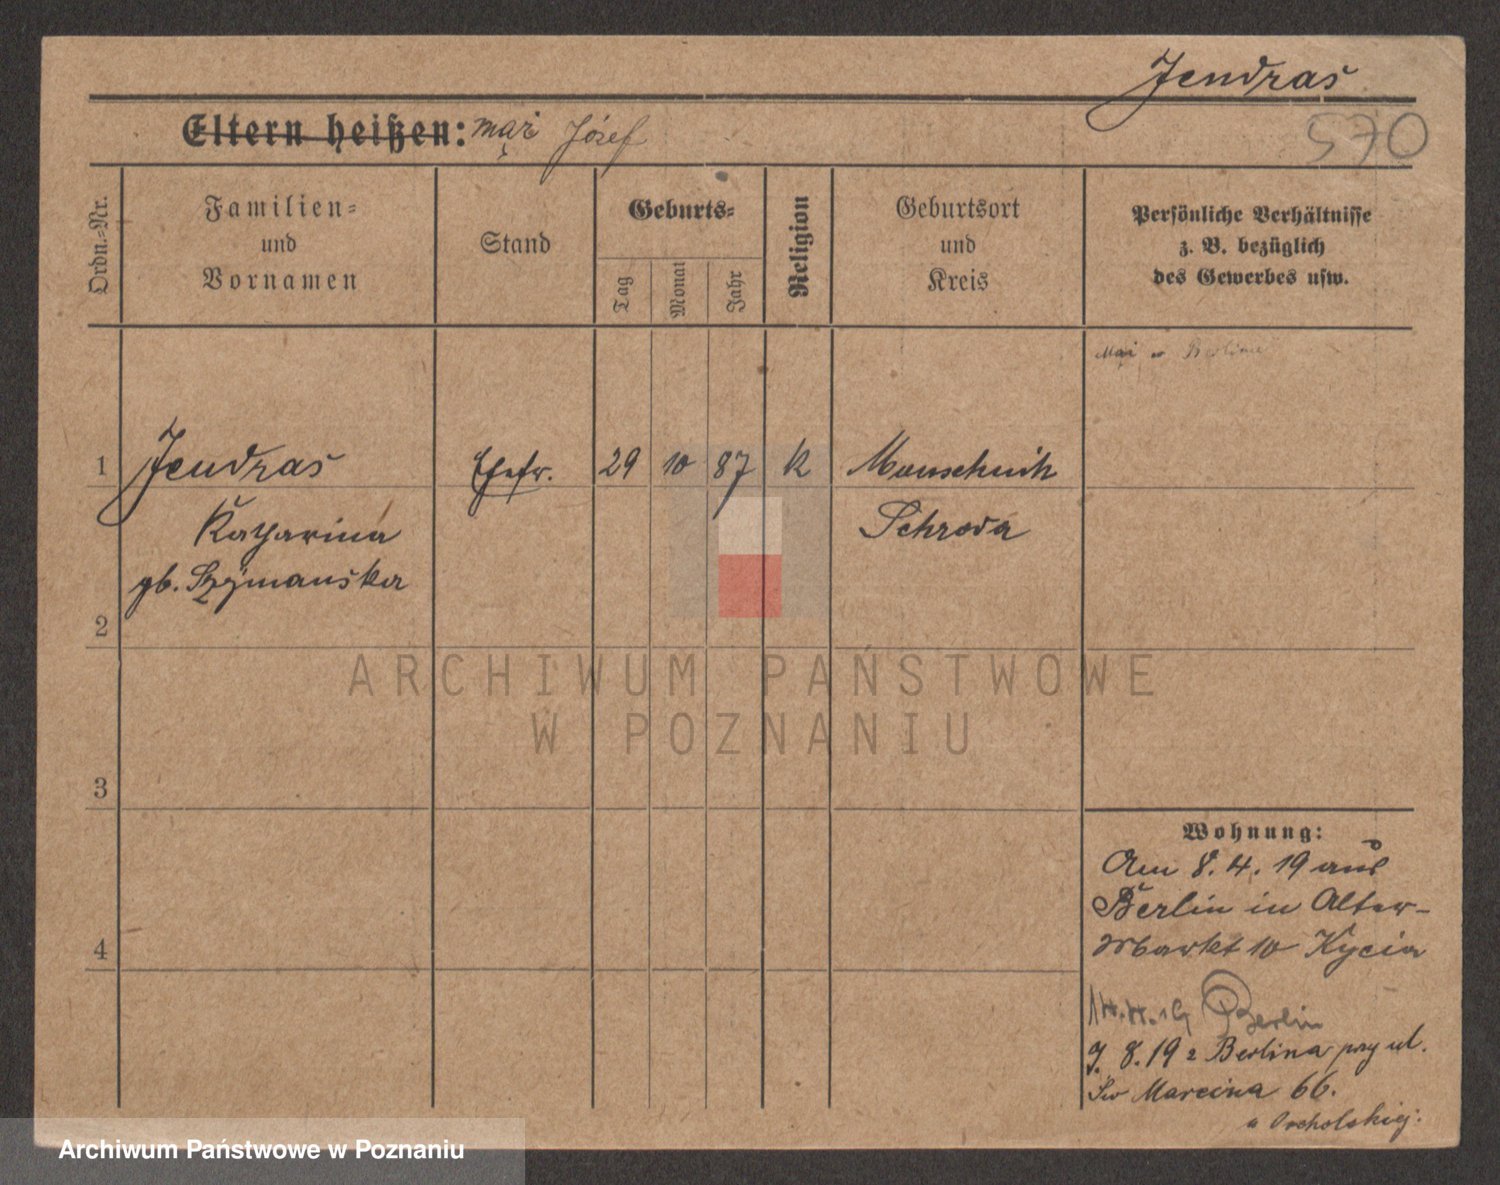 Jendras
570
Eltern heißen: mąż Józef
Ordn.-Nr.
Familien-
und
Vornamen
Stand
Geburts-
Tag
Monat
Jahr
Religion
Geburtsort
und
Kreis
Persönliche Verhältnisse
z. B. bezüglich
des Gewerbes usw.
Mąż w Berlinie
1 Jendras Ehefr. 29 10 87 k Monschnik
Katharina Schroda
gb. Szymańska
2
3
4
Wohnung:
Am 8. 4. 19 aus
Berlin in Alter-
Markt 10 Kycia
Berlin
9. 8. 19 z Berlina przy ul.
Św Marcina 66.
u Orcholskiej.
ARCHIWUM PAŃSTWOWE
W POZNANIU
Archiwum Państwowe w Poznaniu